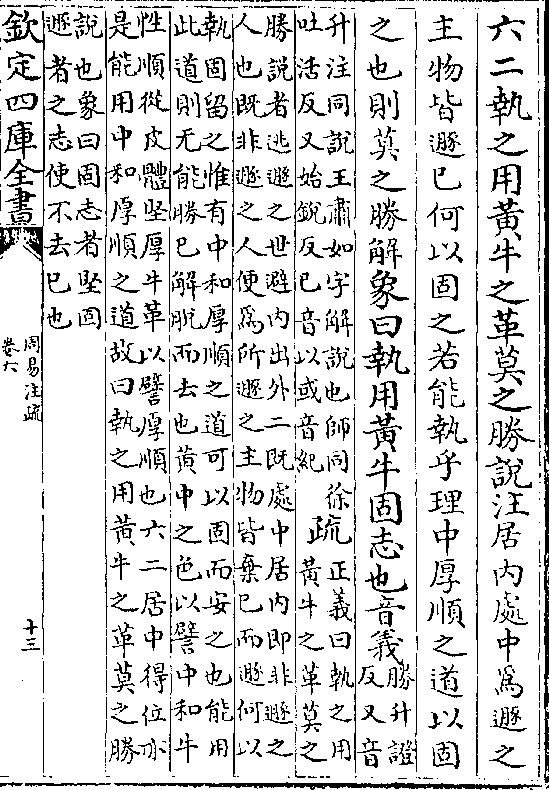 六二執之用黃牛之革莫之勝說注居内處中為遯之
主物皆遯已何以固之若能執乎理中厚順之道以固
之也則莫之勝解象曰執用黃牛固志也音義勝升證
反又音
升注同說王肅如字解說也師同徐
吐活反又始銳反已音以或音紀
疏正義曰執之用
黃牛之革莫之
勝說者逃遯之世避内出外二既處中居内即非遯之
人也既非遯之人便為所遯之主物皆棄已而遯何以
執固留之惟有中和厚順之道可以固而安之也能用
此道則无能勝已解脫而去也黃中之色以譬中和牛
性順從皮體堅厚牛革以譬厚順也六二居中得位亦
是能用中和厚順之道故曰執之用黃牛之革莫之勝
說也象曰固志者堅固
遯者之志使不去已也
欽定四庫全書
周易注疏
卷六
十三